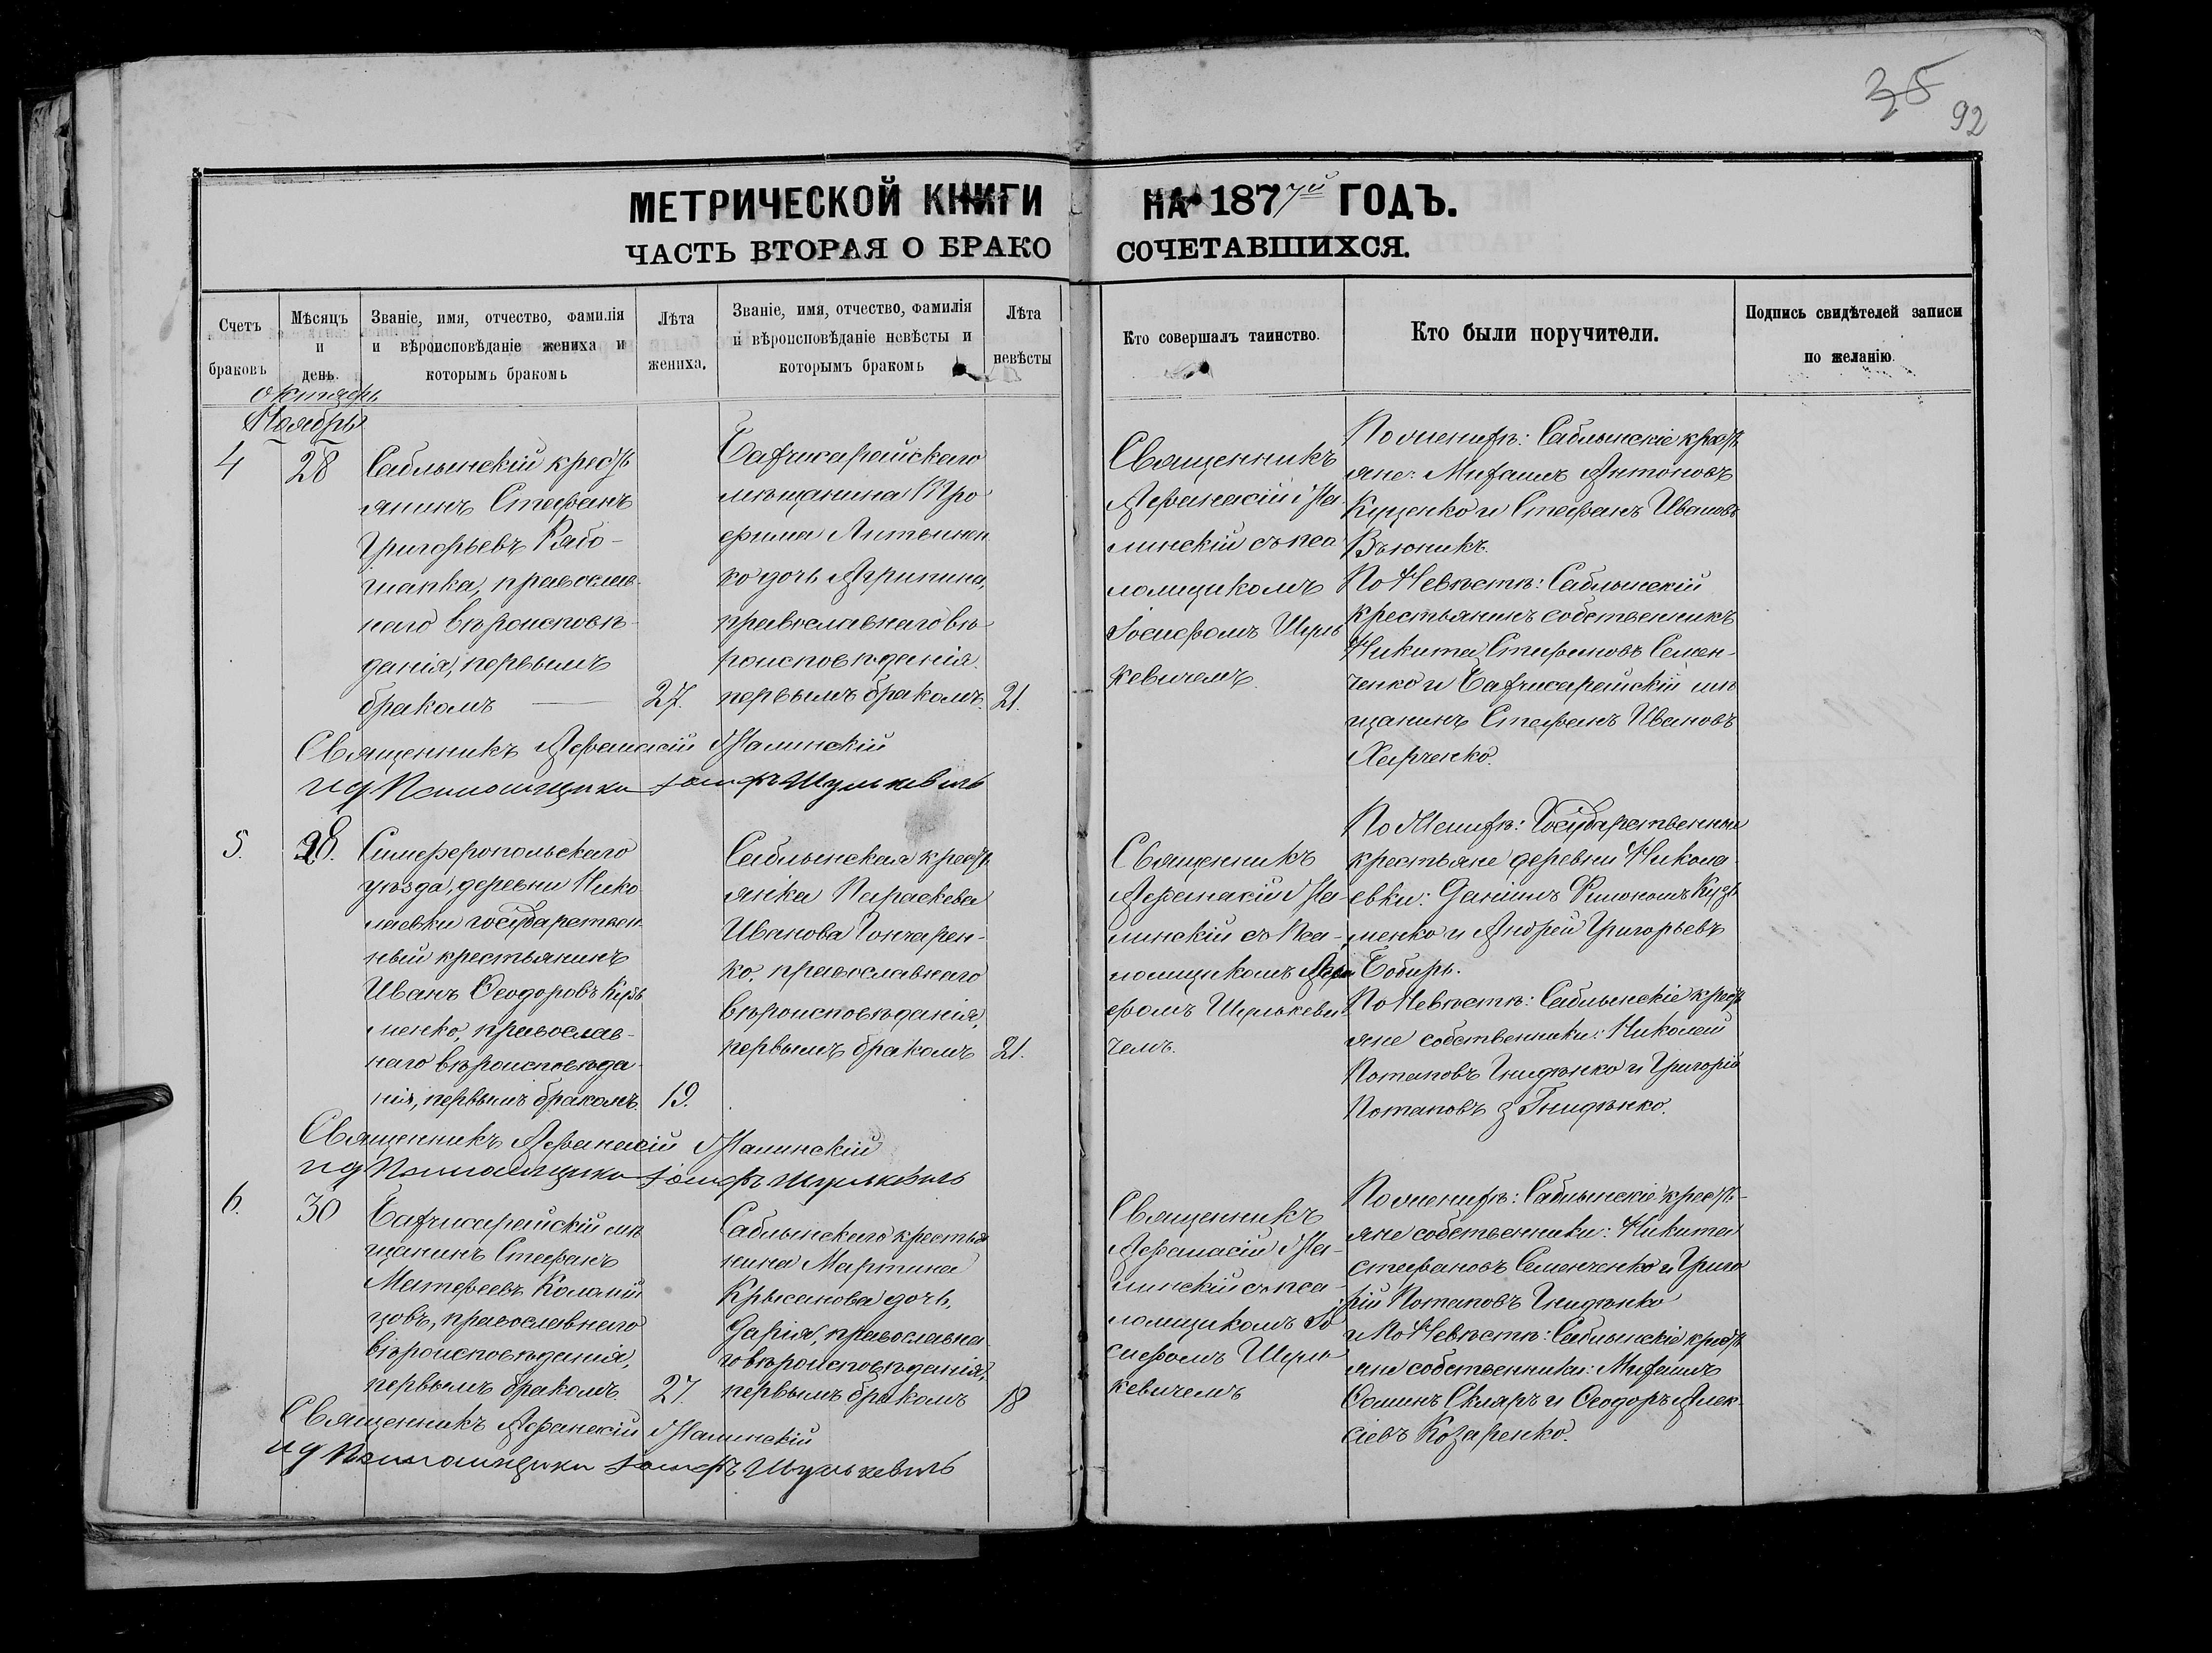 35
92
МЕТРИЧЕСКОЙ КНИГИ НА 1877й ГОДЪ.
ЧАСТЬ ВТОРАЯ О БРАКОСОЧЕТАВШИХСЯ.
Счетъ браковъ
Мѣсяцъ и день.
Званіе, имя, отчество, фамилія и вѣроисповѣданіе жениха и которымъ бракомъ
Лѣта жениха.
Званіе, имя, отчество, фамилія и вѣроисповѣданіе невѣсты и которымъ бракомъ
Лѣта невѣсты
Кто совершалъ таинство.
Кто были поручители.
Подпись свидѣтелей записи по желанію.
Октябрь
Ноябрь
4
28
Саблынскій кресть
янинъ Стефанъ
Григорьевъ Рябо-
шапка, православ-
наго вѣроисповѣ-
данія, первымъ
бракомъ
27.
Бахчисарайскаго
мѣщанина Тро
фима
ко дочь Агрипина,
православнаго вѣ
роисповѣданія
первымъ бракомъ.
21.
Священникъ
Афанасій
линскій съ пса
ломщикомъ
Іосифомъ Шуль
кевичемъ.
По женихѣ: Саблынскіе кресть
яне: Михаилъ Антоновъ
Куценко и Стефанъ Ивановъ
Вьюникъ.
По Невѣстѣ: Саблынскій
крестьянинъ собственникъ
Никита Стефановъ Семен-
ченко и Бахчисарайскій мѣ
щанинъ Стефанъ Ивановъ
Харченко.
Священникъ Афанасій
и д Псаломщика Іосифъ Шулькевичъ
5.
28.
Симферопольскаго
уѣзда, деревни Нико
лаевки государствен-
ный крестьянинъ
Иванъ Ѳеодоровъ Кузь
менко, православ-
наго вѣроисповѣда
нія, первымъ бракомъ.
19.
Саблынская кресть
янка Параскева
Иванова Гончарен-
ко, православнаго
вѣроисповѣданія,
первымъ бракомъ
21.
Священникъ
Афанасій
линскій съ Пса-
ломщикомъ
фомъ Шулькеви
чемъ.
По Женихѣ: Государственные
крестьяне деревни Никола
евки: Даніилъ Кузь
менко и Андрей Григорьевъ
Бобырь.
По Невѣстѣ: Саблынскіе кресть
яне собственники: Николай
Потаповъ Гнидѣнко и Григорій
Потаповъ Гнидѣнко.
Священникъ Афанасій
и д Псаломщика Іосифъ Шулькевичъ
6.
30
Бахчисарайскій мѣ
щанинъ Стефанъ
Матфеевъ Коломій
цовъ, православнаго
вѣроисповѣданія,
первымъ бракомъ.
27.
Саблынскаго крестья
нина Мартина
Крысанова дочь,
Дарія, православна
го вѣроисповѣданія,
первымъ бракомъ
18
Священникъ
Афанасій
линскій съ пса
ломщикомъ Іо
сифомъ Шуль
кевичемъ
По женихѣ: Саблынскіе кресть-
яне собственники: Никита
Стефановъ Семенченко и Григо
рій Потаповъ Гнидѣнко
и По Невѣстѣ: Саблынскіе кресть
яне собственники: Михаилъ
Ѳоминъ Скляръ и Ѳеодоръ Алек
сіевъ Козаренко.
Священникъ Афанасій
и д Псаломщика Іосифъ Шулькевичъ